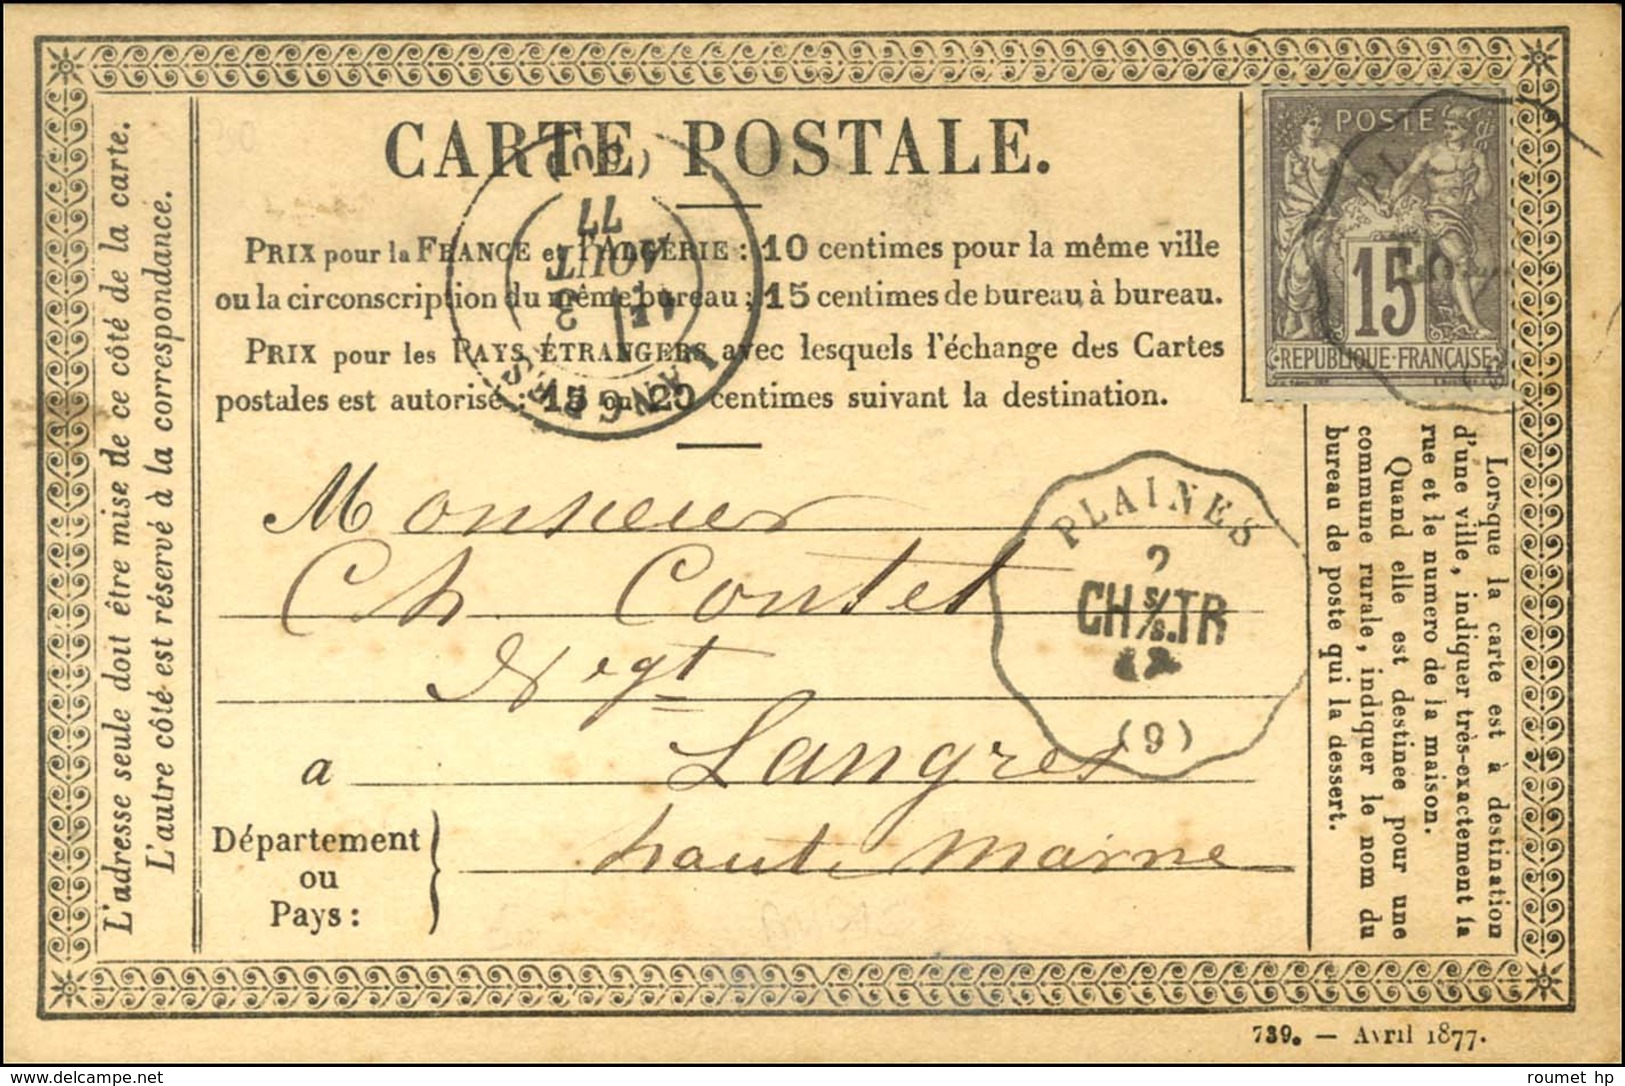 CARTE POSTALE.
PRIX pour la FRANCE et l'ALGÉRIE : 10 centimes pour la même ville
ou la circonscription du même bureau ; 15 centimes de bureau à bureau.
PRIX pour les PAYS ÉTRANGERS avec lesquels l'échange des Cartes
postales est autorisé : 15 ou 20 centimes suivant la destination.
L'adresse seule doit être mise de ce côté de la carte.
L'autre côté est réservé à la correspondance.
POSTE
15
REPUBLIQUE-FRANÇAISE
LANGRES
3
AOUT
77
Monsieur
Ch Contet
Negt
a Langres
Département
ou
Pays :
haute Marne
PLAINES
2
CH S/S. TR
(9)
Lorsque la carte est à destination
d'une ville, indiquer très-exactement la
rue et le numero de la maison.
Quand elle est destinée pour une
commune rurale, indiquer le nom du
bureau de poste qui la dessert.
739. — Avril 1877.
www.delcampe.net
roumet hp